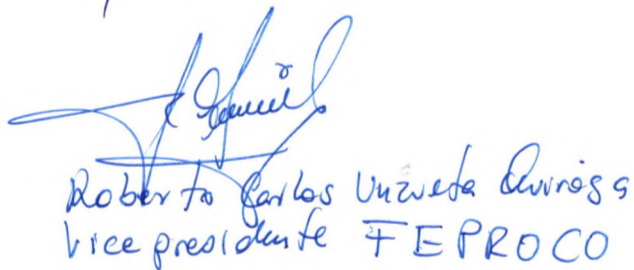 Roberto Carlos Unzueta Quiroga
Vice presidente FEPROCO